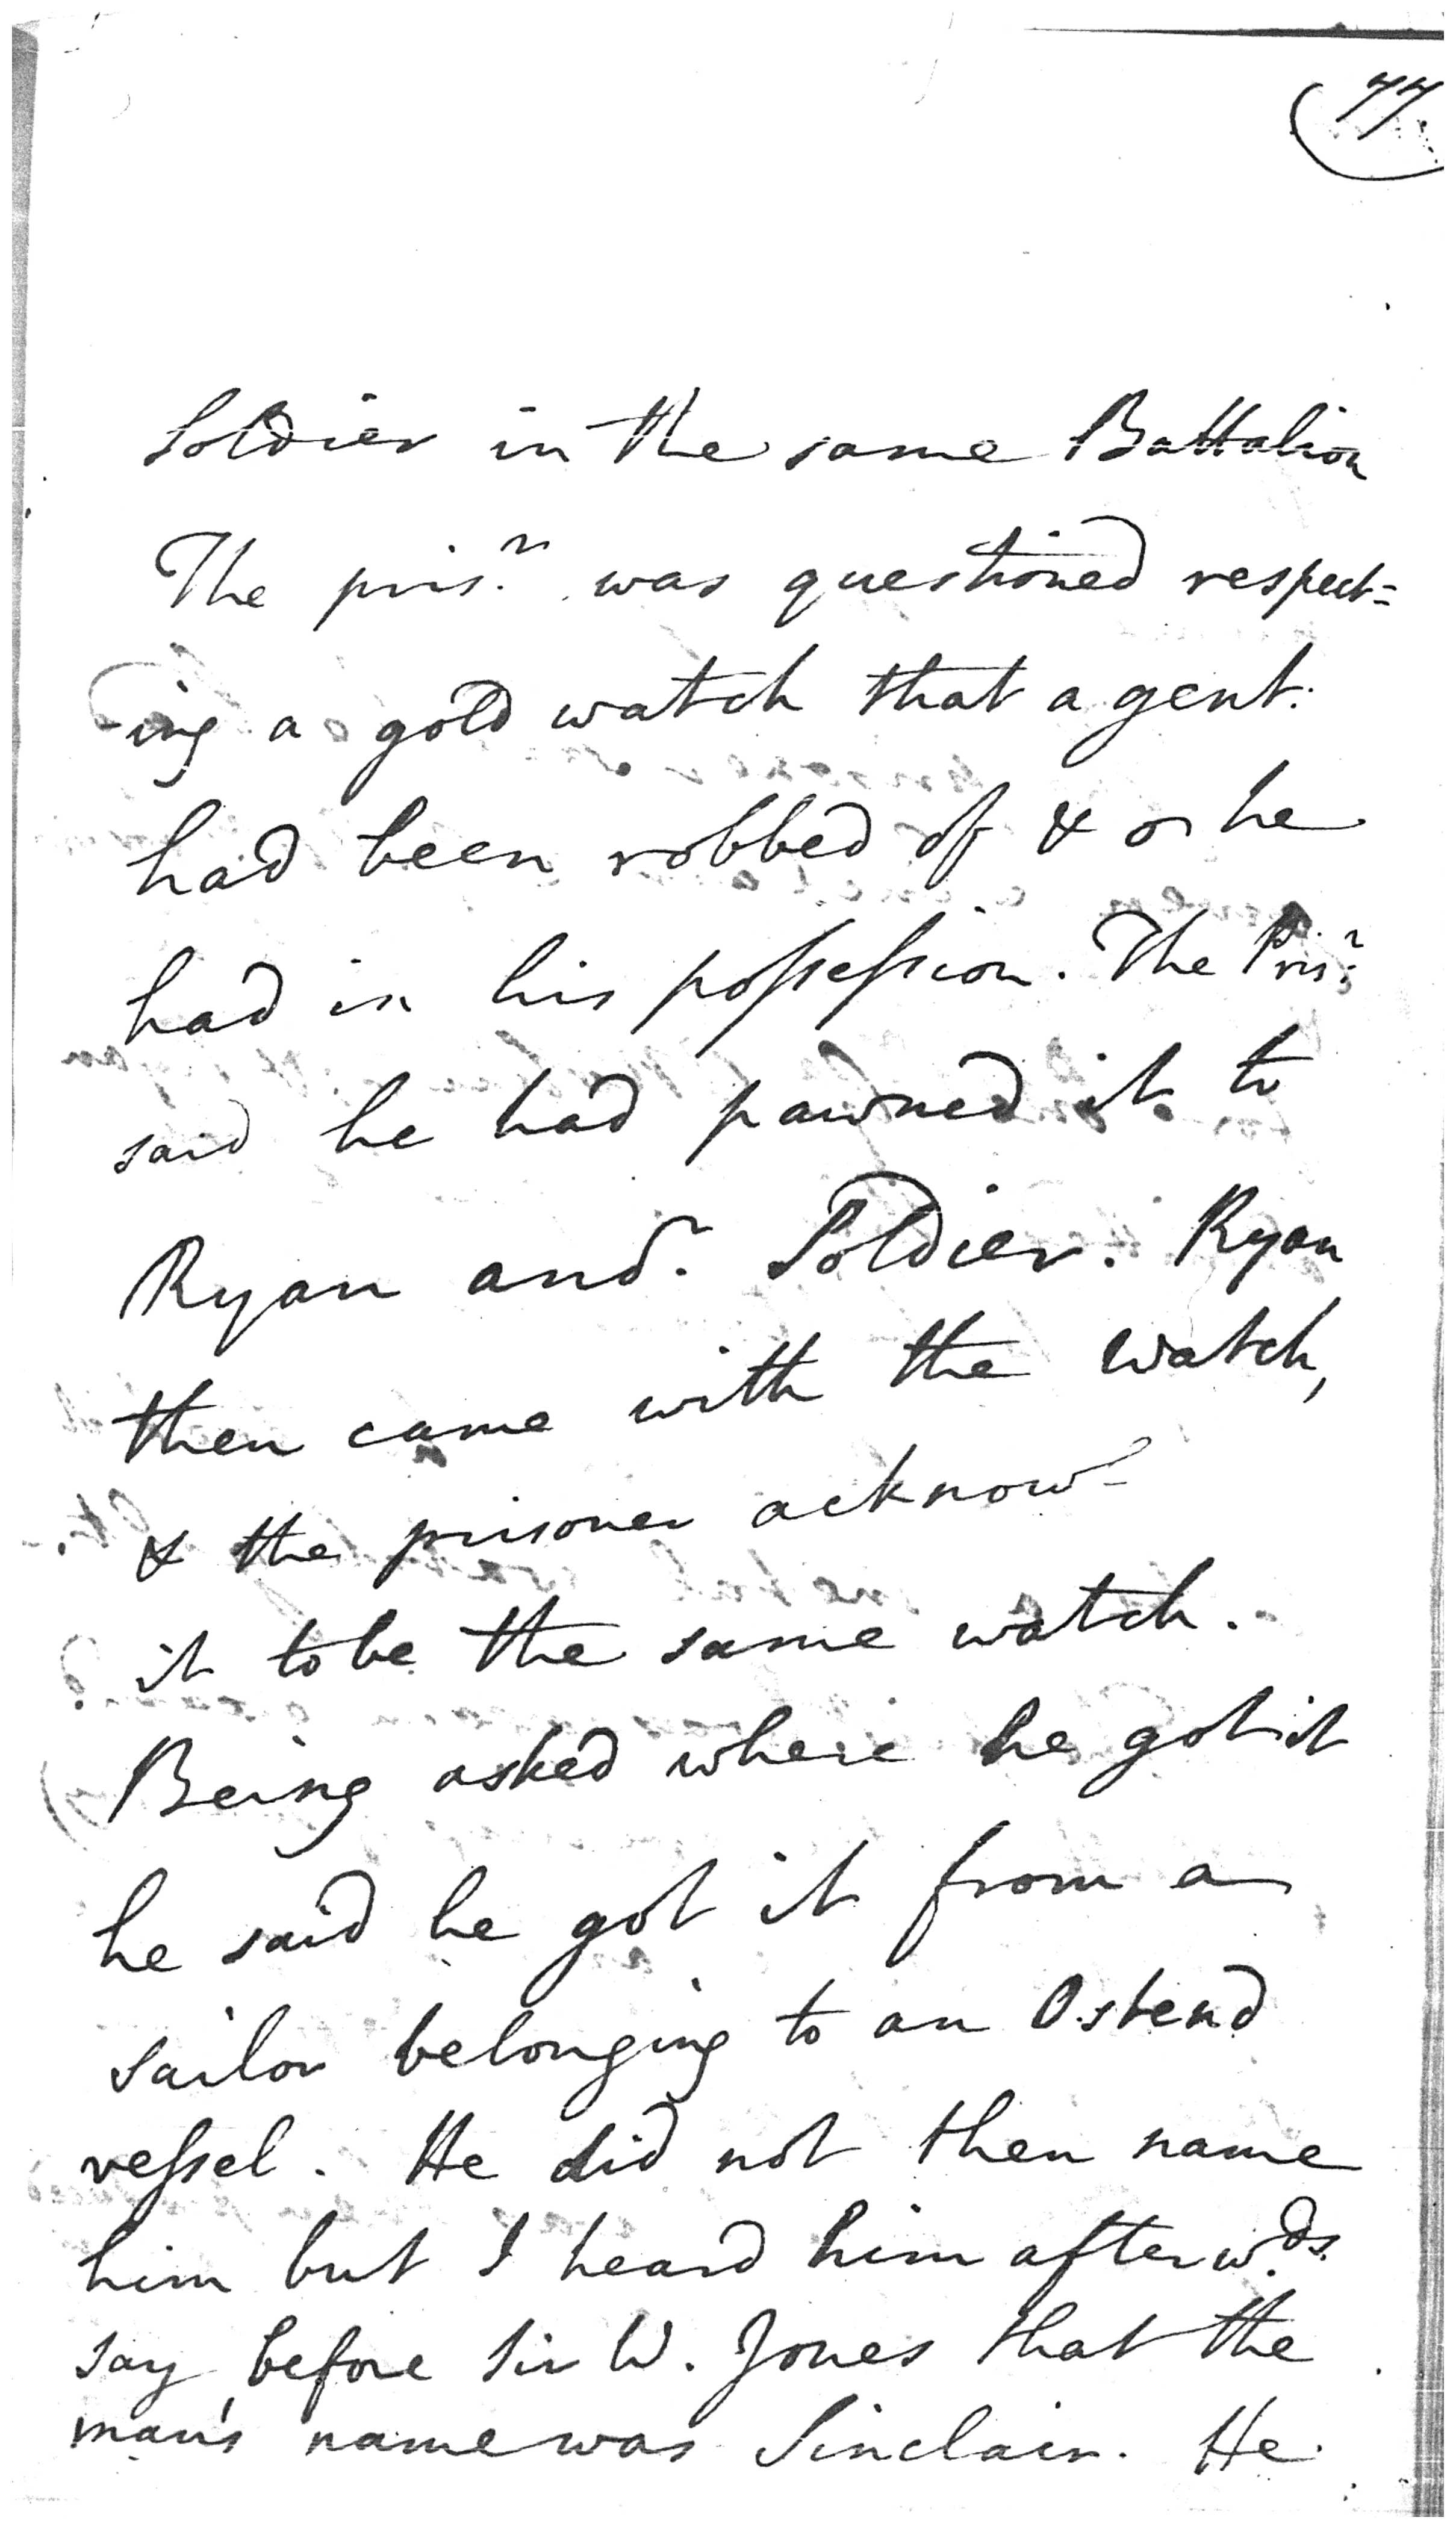 77
Soldier in the same Battalion
The pris.r was questioned respect=
-ing a gold watch that a gent.
had been robbed of & he
had in his possession. The Pris.r
said he had pawned it to
Ryan and.r Soldier. Ryan
then came with the watch,
& the prisoner acknow-
it to be the same watch.
Being asked where he got it
he said he got it from a
sailor belonging to an Ostend
vessel. He did not then name
him but I heard him afterw.ds
say before Sir W. Jones that the
man's name was Sinclair. He